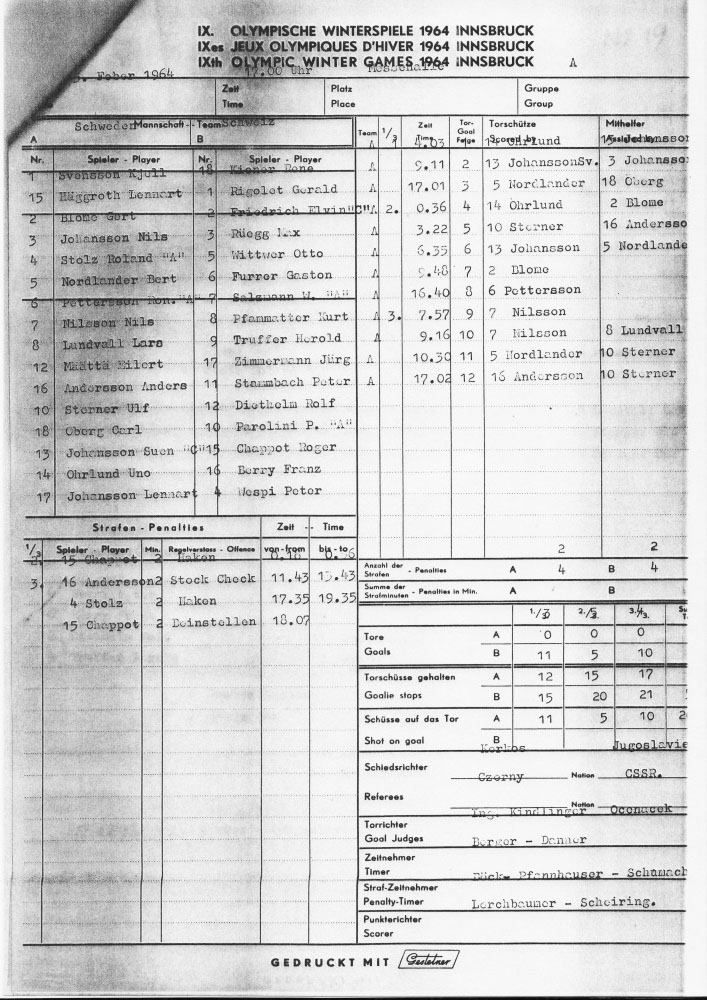 IX. OLYMPISCHE WINTERSPIELE 1964 INNSBRUCK
IXes JEUX OLYMPIQUES D'HIVER 1964 INNSBRUCK
IXth OLYMPIC WINTER GAMES 1964 INNSBRUCK A
. Feber 1964 17.00 Uhr Messehalle
Zeit Platz Gruppe
Time Place Group
Schweden Mannschaft - Team Schweiz
A B
Team 1/3 Zeit Time Tor- Goal Folge Torschütze Scored by Mithelfer
Nr. Spieler - Player Nr. Spieler - Player
A 1 4.03 1 14 Öhrlund 15 Johansso
1 Svensson Kjell 18 Kiener Rene A 9.11 2 13 JohanssonSv. 3 Johansso
15 Häggroth Lennart 1 Rigolet Gerald A 17.01 3 5 Nordlander 18 Öberg
2 Blome Gert 2 Friedrich Elvin"C" A 2. 0.36 4 14 Öhrlund 2 Blome
3 Johansson Nils 3 Rüegg Max A 3.22 5 10 Sterner 16 Andersso
4 Stolz Roland "A" 5 Wittwer Otto A 6.35 6 13 Johansson 5 Nordlande
5 Nordlander Bert 6 Furrer Gaston A 5.48 7 2 Blome
6 Pettersson Ron."A" 7 Salzmann W. "A" A 16.40 8 6 Pettersson
7 Nilsson Nils 8 Pfammatter Kurt A 3. 7.57 9 7 Nilsson
8 Lundvall Lars 9 Truffer Herold A 9.16 10 7 Nilsson 8 Lundvall
12 Määttä Eilert 17 Zimmermann Jürg A 10.30 11 5 Nordlander 10 Sterner
16 Andersson Anders 11 Stammbach Peter A 17.02 12 16 Andersson 10 Sterner
10 Sterner Ulf 12 Diethelm Rolf
18 Öberg Carl 10 Parolini P. "A"
13 Johansson Suen "C" 15 Chappot Roger
14 Öhrlund Uno 16 Berry Franz
17 Johansson Lennart 4 Wespi Peter
Strafen - Penalties Zeit -- Time
1/3 Spieler - Player Min. Regelverstoss - Offence von - from bis - to
2. 15 Chappot 2 Haken 6.16
3. 16 Andersson 2 Stock Check 11.43 13.43
4 Stolz 2 Haken 17.35 19.35
15 Chappot 2 Beinstellen 18.07
2 2
Anzahl der Strafen - Penalties A 4 B 4
Summe der Strafminuten - Penalties in Min. A B
1./3 2./3. 3./3.
Tore A 0 0 0
Goals B 11 5 10
Torschüsse gehalten A 12 15 17
Goalie stops B 15 20 21
Schüsse auf das Tor A 11 5 10 2
Shot on goal B
Kerkos Jugoslavie
Schiedsrichter
Czerny Nation CSSR.
Referees
Nation
Ing. Kindlinger Ocenacek
Torrichter
Goal Judges Berger - Danner
Zeitnehmer
Timer Böck- Pfannhauser - Schumach
Straf-Zeitnehmer
Penalty-Timer Lerchbaumer - Scheiring.
Punkterichter
Scorer
GEDRUCKT MIT Gestetner